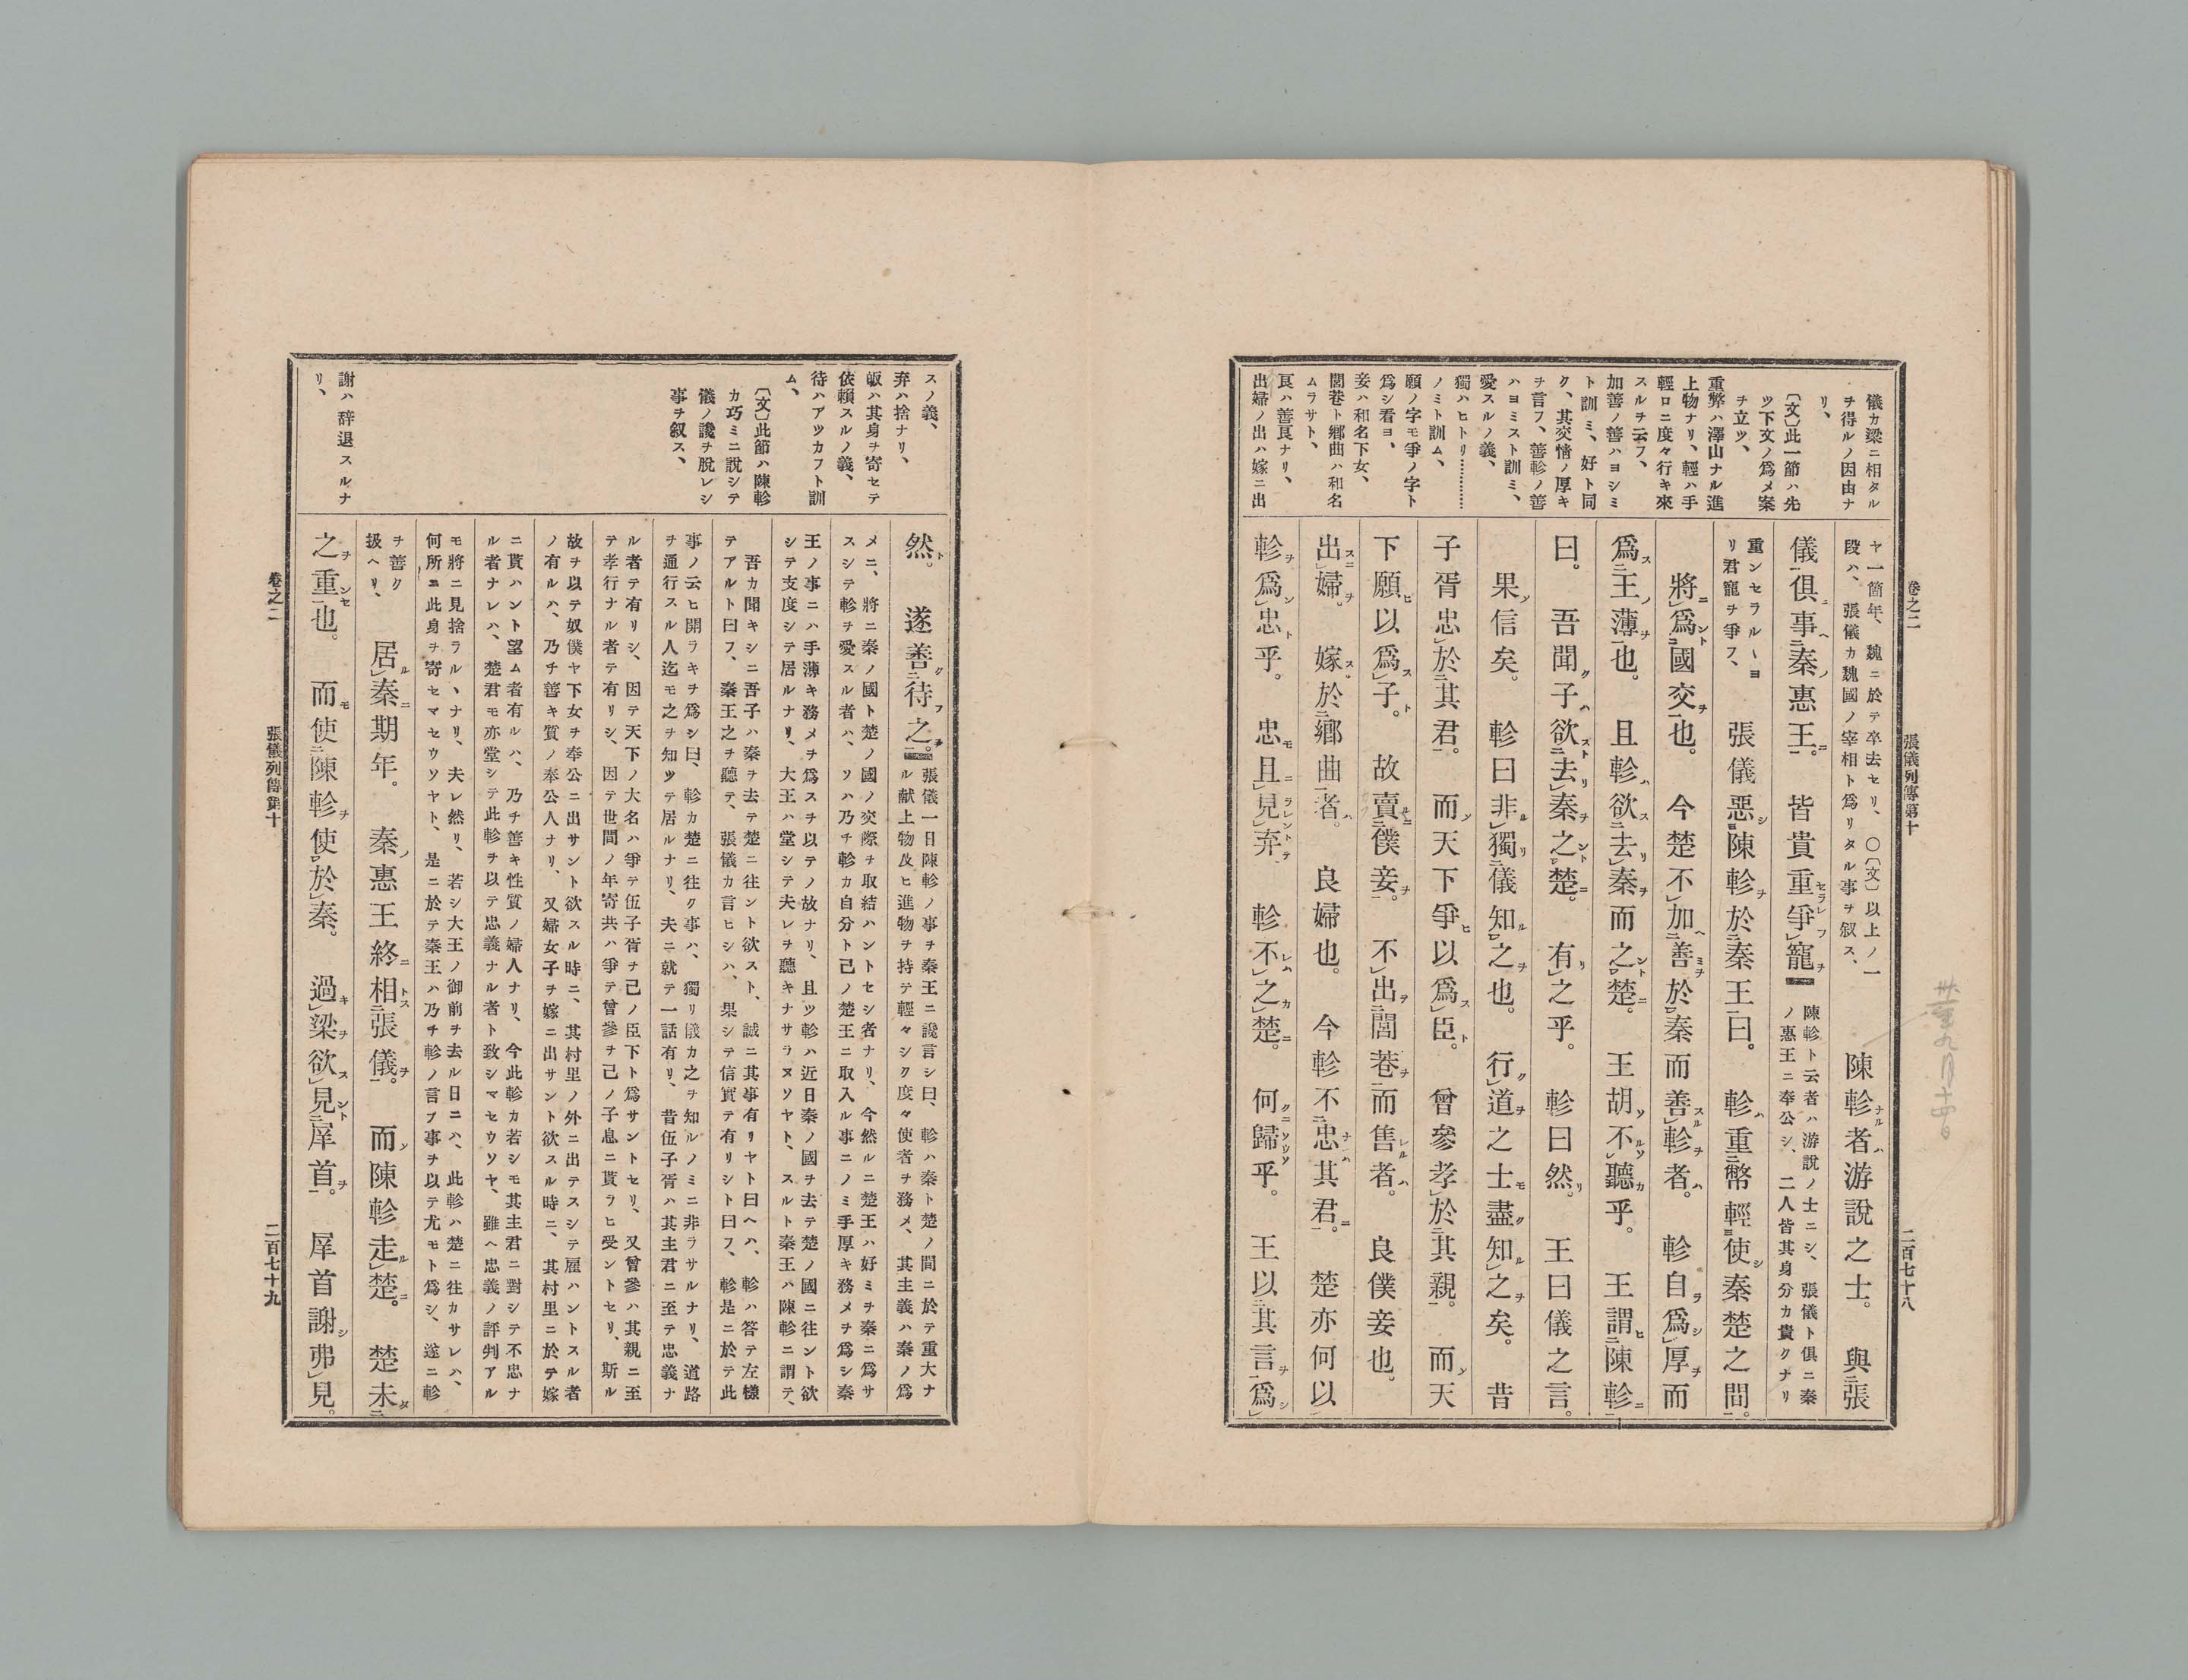 儀カ梁ニ相タル
ヲ得ルノ因由ナ
リ、
〔文〕此一節ハ先
ツ下文ノ爲メ案
ヲ立ツ、
重幣ハ澤山ナル進
上物ナリ、輕ハ手
輕ロニ度々行キ來
スルヲ云フ、
加善ノ善ハヨシミ
ト訓ミ、好ト同
ク、其交情ノ厚キ
ヲ言フ、善軫ノ善
ハヨミスト訓ミ、
愛スルノ義、
獨ハヒトリ…………
ノミト訓ム、
願ノ字モ爭ノ字ト
爲シ看ヨ、
妾ハ和名下女、
閭巷ト鄕曲ハ和名
ムラサト、
良ハ善良ナリ、
出婦ノ出ハ嫁ニ出
卷之二
張儀列傳第十
二百七十八
ヤ一箇年、魏ニ於テ卒去セリ、〇〔文〕以上ノ一
段ハ、張儀カ魏國ノ宰相ト爲リタル事ヲ叙ス、
陳軫者游說之士。與張
儀俱事秦惠王。皆貴重爭寵
陳軫ト云者ハ游說ノ士ニシ、張儀ト俱ニ秦
ノ惠王ニ奉公シ、二人皆其身分カ貴クナリ
重ンセラルヽヨ
リ君寵ヲ爭フ、
張儀惡陳軫於秦王曰。軫重幣輕使秦楚之間。
將爲國交也。今楚不加善於秦而善軫者。軫自爲厚而
爲王薄也。且軫欲去秦而之楚。王胡不聽乎。王謂陳軫
曰。吾聞子欲去秦之楚。有之乎。軫曰然。王曰儀之言。
果信矣。軫曰非獨儀知之也。行道之士盡知之矣。昔
子胥忠於其君。而天下爭以爲臣。曾參孝於其親。而天
下願以爲子。故賣僕妾。不出閭巷而售者。良僕妾也。
出婦。嫁於鄕曲者。良婦也。今軫不忠其君。楚亦何以
軫爲忠乎。忠且見弃、軫不之楚。何歸乎。王以其言爲
スノ義、
弃ハ捨ナリ、
皈ハ其身ヲ寄セテ
依賴スルノ義、
待ハアツカフト訓
ム、
〔文〕此節ハ陳軫
カ巧ミニ說シテ
儀ノ讒ヲ脫レシ
事ヲ叙ス、
謝ハ辞退スルナ
リ、
然。遂善待之。
張儀一日陳軫ノ事ヲ秦王ニ讒言シ曰、軫ハ秦ト楚ノ間ニ於テ重大ナ
ル献上物及ヒ進物ヲ持テ輕々シク度々使者ヲ務メ、其主義ハ秦ノ爲
メニ、將ニ秦ノ國ト楚ノ國ノ交際ヲ取結ハントセシ者ナリ、今然ルニ楚王ハ好ミヲ秦ニ爲サ
スシテ軫ヲ愛スル者ハ、ソハ乃チ軫カ自分ト己ノ楚王ニ取入ル事ニノミ手厚キ務メヲ爲シ秦
王ノ事ニハ手薄キ務メヲ爲スヲ以テノ故ナリ、且ツ軫ハ近日秦ノ國ヲ去テ楚ノ國ニ往ント欲
シテ支度シテ居ルナリ、大王ハ堂シテ夫レヲ聽キナサラヌソヤト、スルト秦王ハ陳軫ニ謂テ、
吾カ聞キシニ吾子ハ秦ヲ去テ楚ニ往ント欲スト、誠ニ其事有リヤト曰ヘハ、軫ハ答テ左樣
テアルト曰フ、秦王之ヲ聽テ、張儀カ言ヒシハ、果シテ信實テ有リシト曰フ、軫是ニ於テ此
事ノ云ヒ開ラキヲ爲シ曰、軫カ楚ニ往ク事ハ、獨リ儀カ之ヲ知ルノミニ非ラサルナリ、道路
ヲ通行スル人迄モ之ヲ知ツテ居ルナリ、夫ニ就テ一話有リ、昔伍子胥ハ其主君ニ至テ忠義ナ
ル者テ有リシ、因テ天下ノ大名ハ爭テ伍子胥ヲ己ノ臣下ト爲サントセリ、又曾參ハ其親ニ至
テ孝行ナル者テ有リシ、因テ世間ノ年寄共ハ爭テ曾參ヲ己ノ子息ニ貰ラヒ受ントセリ、斯ル
故ヲ以テ奴僕ヤ下女ヲ奉公ニ出サント欲スル時ニ、其村里ノ外ニ出テスシテ雇ハントスル者
ノ有ルハ、乃チ善キ質ノ奉公人ナリ、又婦女子ヲ嫁ニ出サント欲スル時ニ、其村里ニ於テ嫁
ニ貰ハント望ム者有ルハ、乃チ善キ性質ノ婦人ナリ、今此軫カ若シモ其主君ニ對シテ不忠ナ
ル者ナレハ、楚君モ亦堂シテ此軫ヲ以テ忠義ナル者ト致シマセウソヤ、雖ヘ忠義ノ評判アル
モ將ニ見捨ラルヽナリ、夫レ然リ、若シ大王ノ御前ヲ去ル日ニハ、此軫ハ楚ニ往カサレハ、
何所ニ此身ヲ寄セマセウソヤト、是ニ於テ秦王ハ乃チ軫ノ言フ事ヲ以テ尤モト爲シ、遂ニ軫
ヲ善ク
扱ヘリ、
居秦期年。秦惠王終相張儀。而陳軫走楚。楚未
之重也。而使陳軫使於秦。過梁欲見犀首。犀首謝弗見。
卷之二
張儀列傳第十
二百七十九